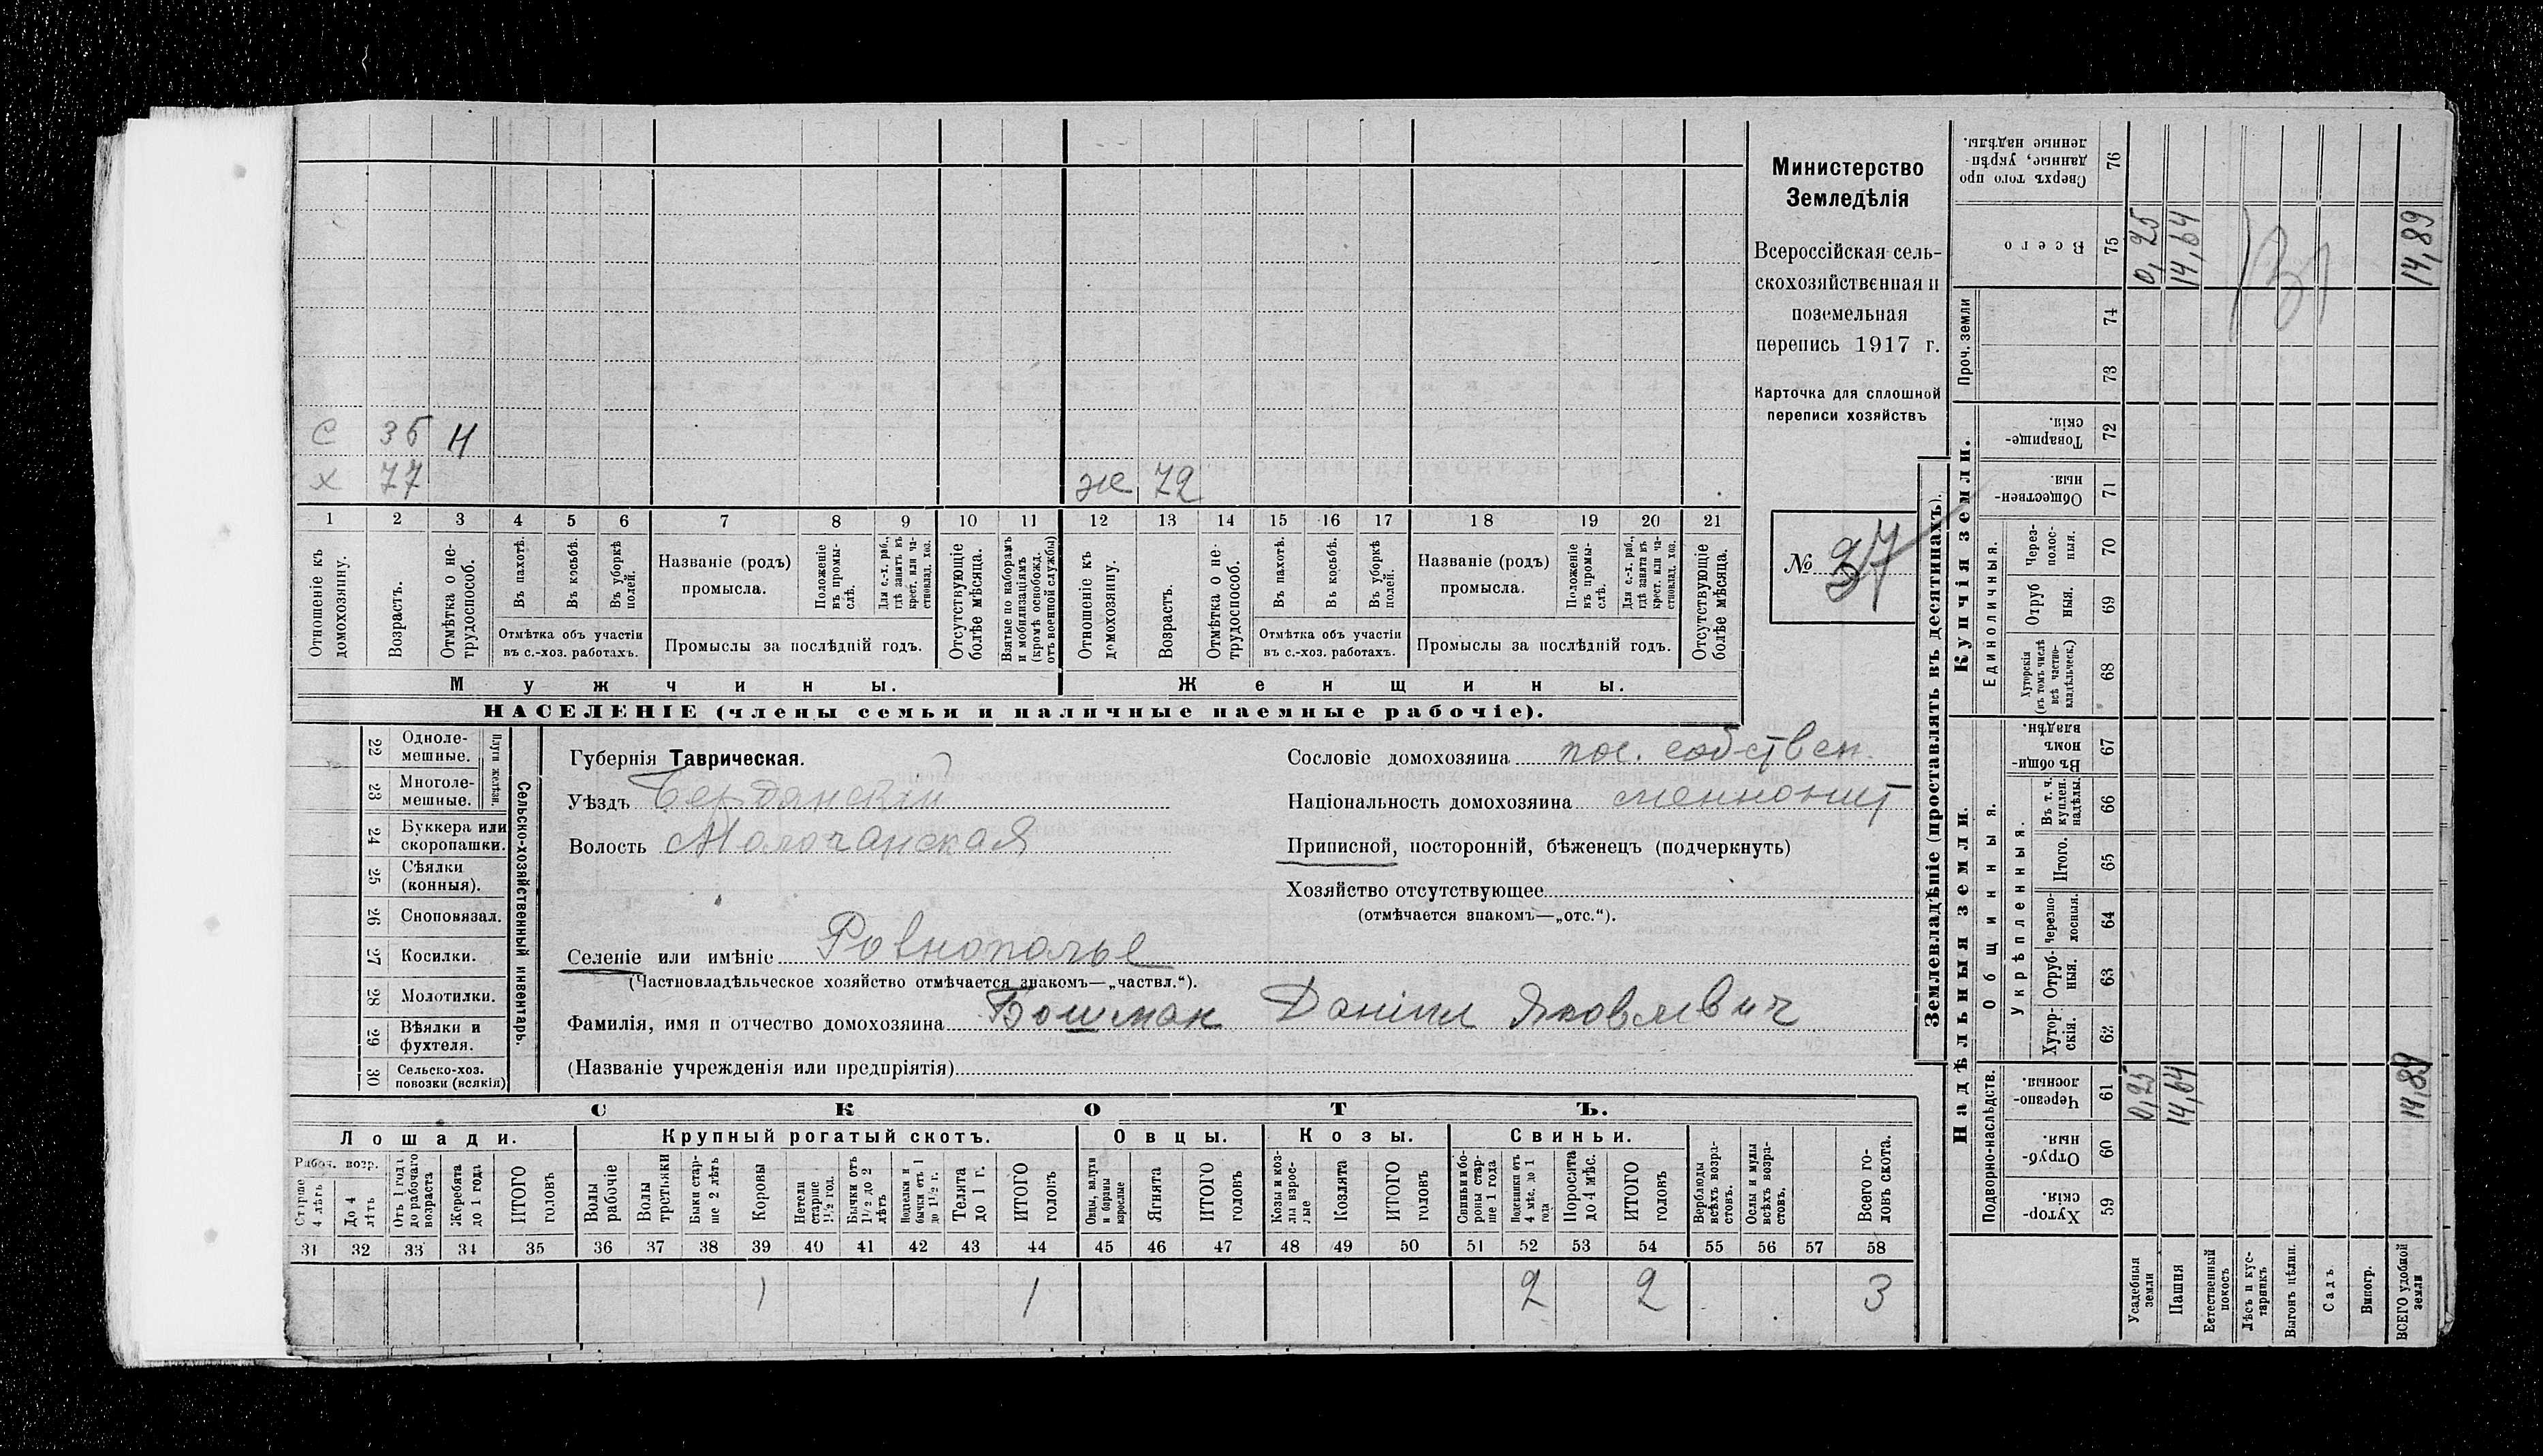 Министерство
Земледѣлія
Всероссійская сель-
скохозяйственная и
поземельная
перепись 1917 г.
Карточка для сплошной
переписи хозяйствъ
№ 37
С 36 Н
х 77 ж 72
1 2 3 4 5 6 7 8 9 10 11 12 13 14 15 16 17 18 19 20 21
Отношеніе къ домохозяину.
Возрастъ.
Отмѣтка о не-трудоспособ.
Въ пахотѣ.
Въ косьбѣ.
Въ уборкѣ полей.
Отмѣтка объ участіи въ с.-хоз. работахъ.
Названіе (родъ) промысла.
Положеніе въ промы-слѣ.
Для с.-х. раб., гдѣ занятъ въ крест. или ча-стновлад. хоз.
Промыслы за послѣдній годъ.
Отсутствующіе болѣе мѣсяца.
Взятые по наборамъ и мобилизаціямъ (кромѣ освобожд. отъ военной службы)
Отношеніе къ домохозяину.
Возрастъ.
Отмѣтка о не-трудоспособ.
Въ пахотѣ.
Въ косьбѣ.
Въ уборкѣ полей.
Отмѣтка объ участіи въ с.-хоз. работахъ.
Названіе (родъ) промысла.
Положеніе въ промы-слѣ.
Для с.-х. раб., гдѣ занята въ крест. или ча-стновлад. хоз.
Промыслы за послѣдній годъ.
Отсутствующіе болѣе мѣсяца.
Мужчины. Женщины.
НАСЕЛЕНІЕ (члены семьи и наличные наемные рабочіе).
Сельско-хозяйственный инвентарь.
Плуги желѣзн.
22 Одноле-мешные.
23 Многоле-мешные.
24 Буккера или скоропашки.
25 Сѣялки (конныя).
26 Сноповязал.
27 Косилки.
28 Молотилки.
29 Вѣялки и фухтеля.
30 Сельско-хоз. повозки (всякія)
Губернія Таврическая.
Уѣздъ Бердянскій
Волость Молочанская
Селеніе или имѣніе Ровнополье
(Частновладѣльческое хозяйство отмѣчается знакомъ—„частвл.“).
Фамилія, имя и отчество домохозяина Бошман Даніил Яковлевич
(Названіе учрежденія или предпріятія)
Сословіе домохозяина пос. собствен.
Національность домохозяина меннонит
Приписной, посторонній, бѣженецъ (подчеркнуть)
Хозяйство отсутствующее
(отмѣчается знакомъ—„отс.“).
СКОТЪ.
Лошади. Крупный рогатый скотъ. Овцы. Козы. Свиньи.
Работ. возр.
Старше 4 лѣтъ
До 4 лѣтъ
Отъ 1 года до рабочаго возраста
Жеребята до 1 года
ИТОГО головъ
Волы рабочіе
Волы третьяки
Быки стар-ше 2 лѣтъ
Коровы
Нетели старше 1½ год.
Бычки отъ 1½ до 2 лѣтъ
Подтелки и бычки отъ 1 до 1½ г.
Телята до 1 г.
ИТОГО головъ
Овцы, валухи и бараны взрослые
Ягнята
ИТОГО головъ
Козы и коз-лы взрос-лые
Козлята
ИТОГО головъ
Свиньи и бо-ровы стар-ше 1 года
Подсвинки отъ 4 мѣс. до 1 года
Поросята до 4 мѣс.
ИТОГО головъ
Верблюды всѣхъ возра-стовъ.
Ослы и мулы всѣхъ возра-стовъ.
Всего го-ловъ скота.
31 32 33 34 35 36 37 38 39 40 41 42 43 44 45 46 47 48 49 50 51 52 53 54 55 56 57 58
1 1 2 2 3
Землевладѣніе (проставлять въ десятинахъ).
Надѣльныя земли. Купчія земли. Проч. земли
Подворно-наслѣдств.
Общинныя.
Укрѣпленныя.
Единоличныя.
Сверхъ того про-данные, укрѣп-ленные надѣлы. 76
Всего 75 0,25 14,64 14,89
74
73
Товарище-скія. 72
Обществен-ныя. 71
Через-полос-ныя. 70
Отруб-ныя. 69
Хуторскія (въ томъ числѣ всѣ частно-владѣльческ.) 68
Въ общи-номъ владѣн. 67
Въ т. ч. куплен. надѣлы. 66
Итого. 65
Черезпо-лосныя. 64
Отруб-ныя. 63
Хутор-скія. 62
Черезпо-лосныя. 61 0,25 14,64 14,89
Отруб-ныя. 60
Хутор-скія. 59
Усадебныя земли
Пашня
Естественный покосъ
Лѣсъ и кус-тарникъ
Выгонъ цѣлин.
Садъ
Виногр.
ВСЕГО удобной земли